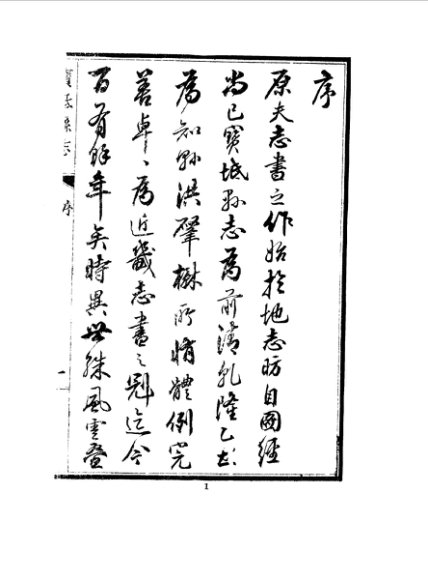 序
原夫志書之作始於地志昉自圖經
尚已寶坻縣志為前清乾隆乙丑
為知縣洪肇楙所脩體例完
善卓〻為近畿志書之冠迄今
百有餘年矣時異世殊風雲叠
寶坻縣志
序
一
1